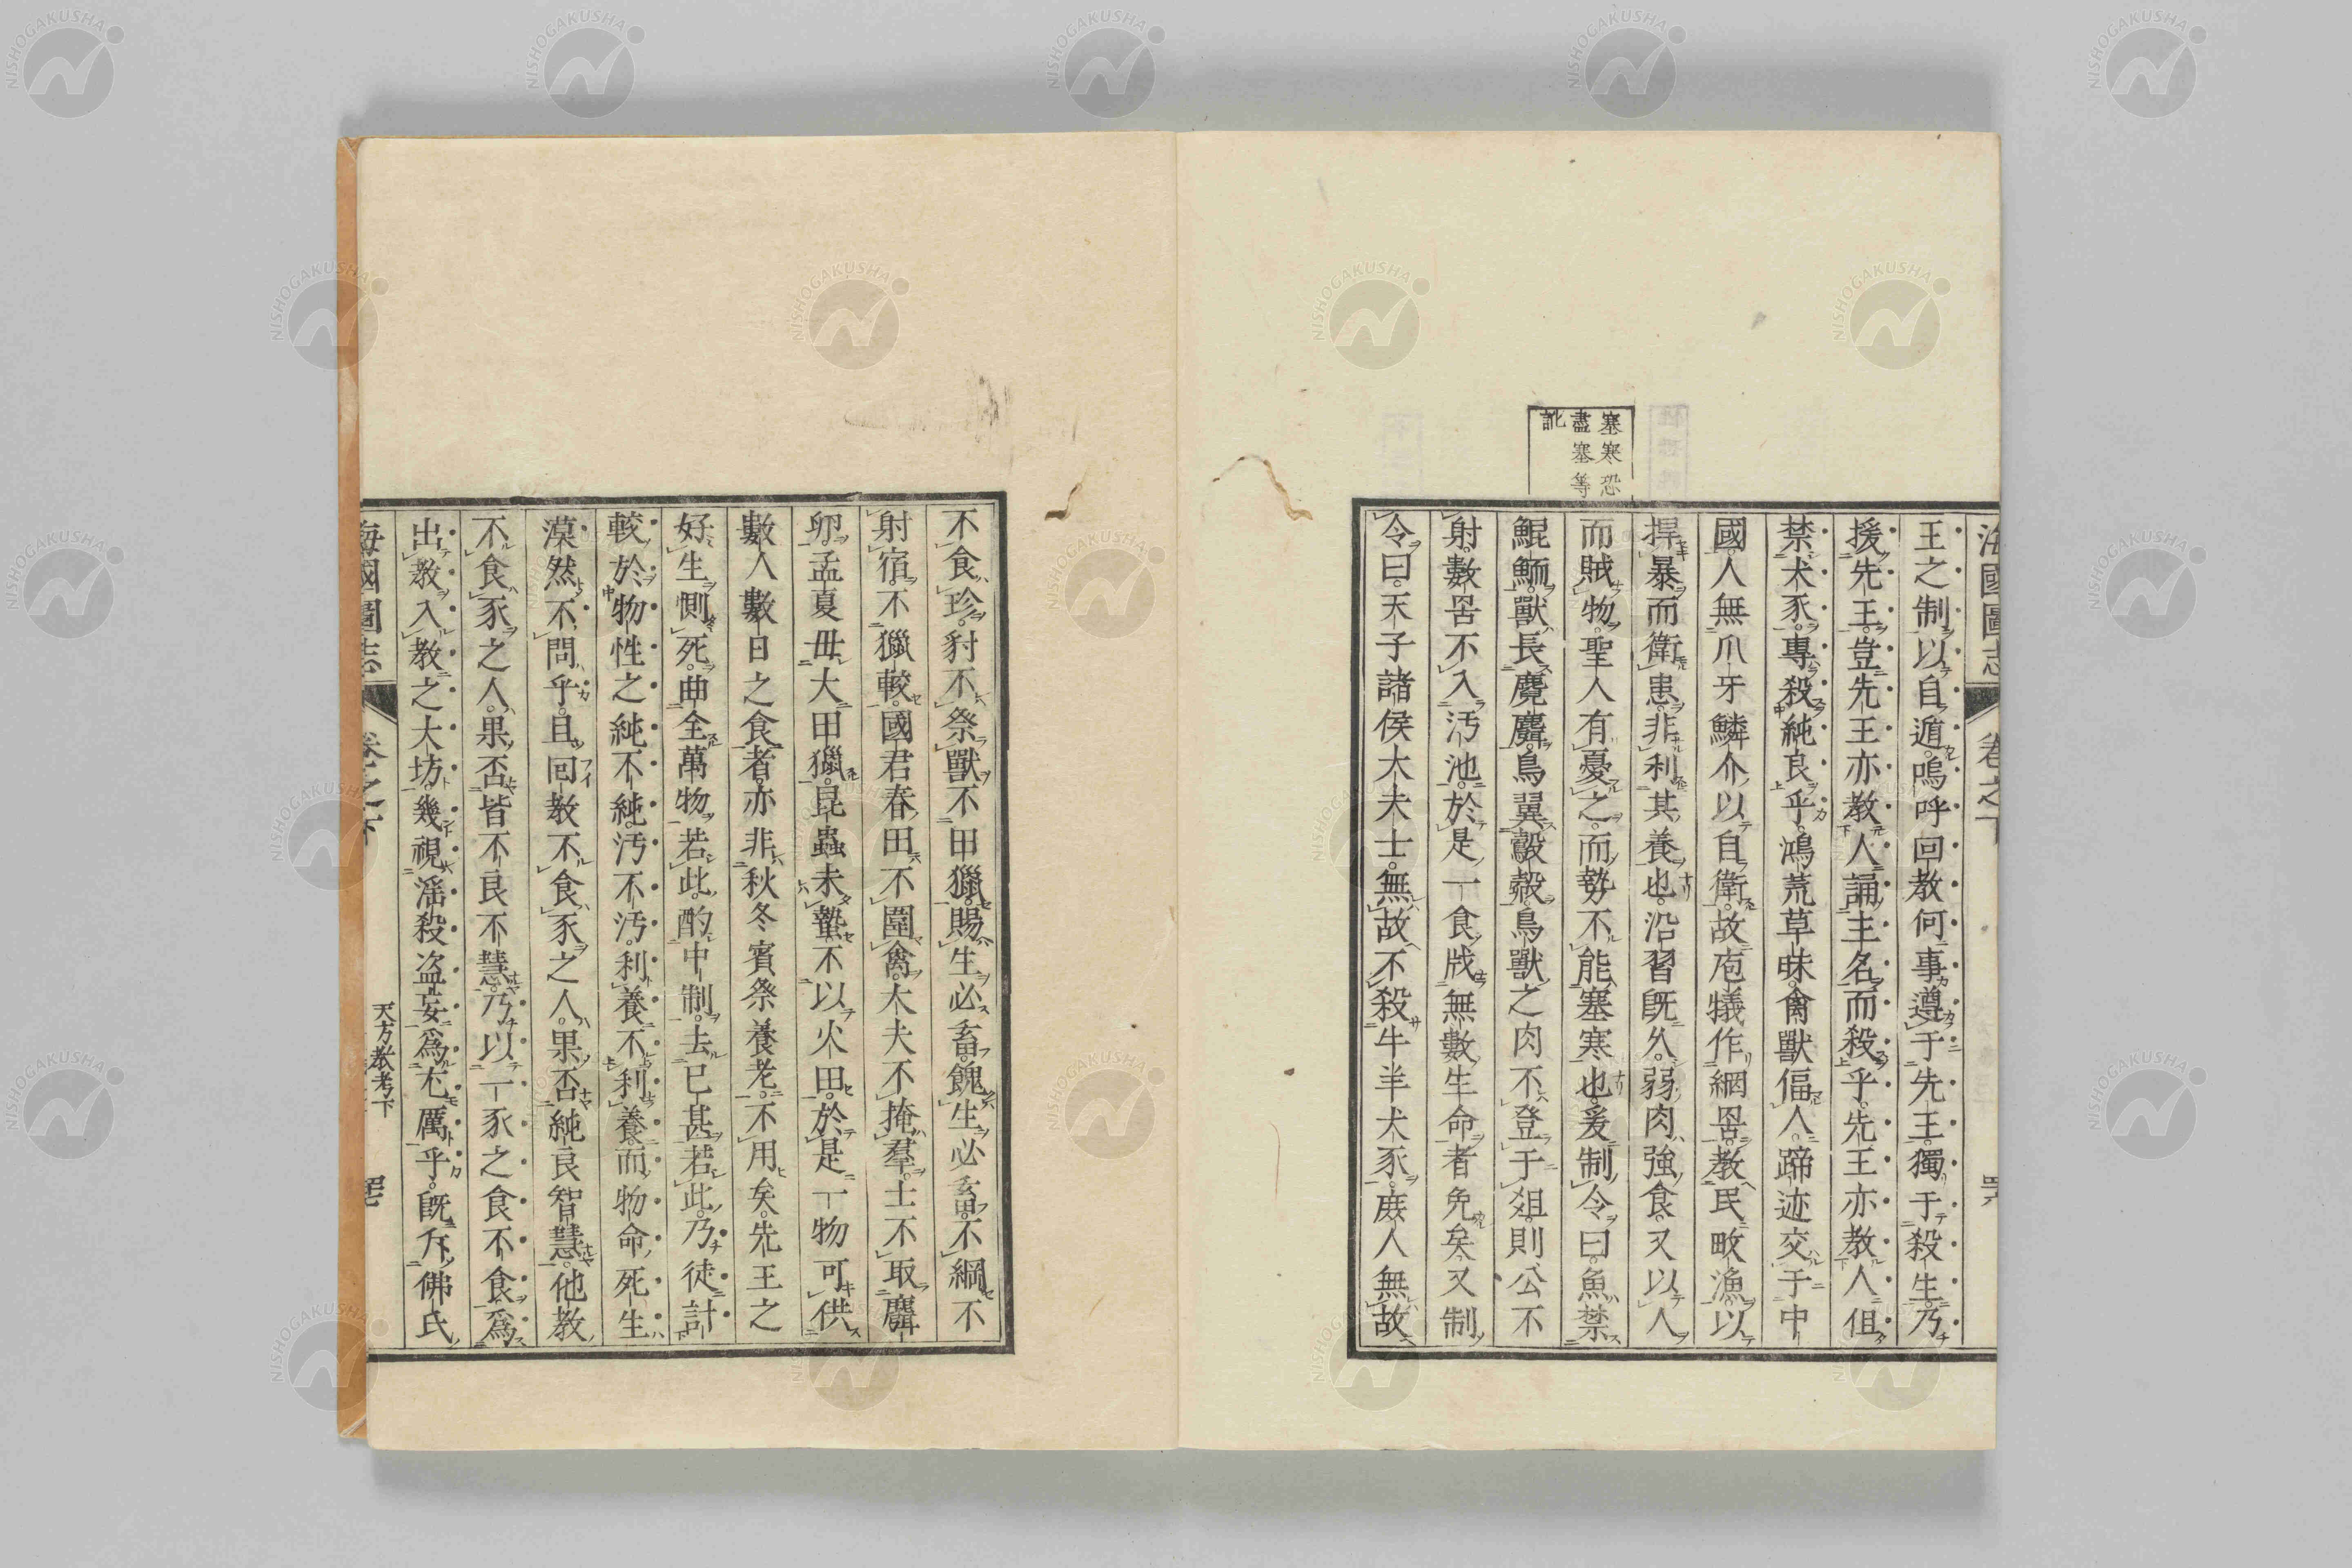 海國圖志 卷之下
塞寒恐
盡塞等
訛
王之制以自遁嗚呼回教何事遵于先王獨于殺生乃
援先王豈先王亦教人誦主名而殺乎先王亦教人但
禁犬豕專殺純良乎鴻荒草昧禽獸偪人蹄迹交于中
國人無爪牙鱗介以自衛故庖犧作網罟教民畋漁以
捍暴而衛患非利其養也沿習既久弱肉強食又以人
而賊物聖人有憂之而勢不能塞寒也爰制令曰魚禁
鯤鮞獸長麑麌鳥翼鷇殼鳥獸之肉不登于俎則公不
射數罟不入汚池於是一食戕無數生命者免矣又制
令曰天子諸侯大夫士無故不殺牛羊犬豕庻人無故
不食珍豺不祭獸不田獵賜生必畜餽生必畜不綱不
射宿不獵較國君春田不圍禽大夫不掩羣士不取麛
卵孟夏毋大田獵昆蟲未蟄不以火田於是一物可供
數人數日之食者亦非秋冬賓祭養老不用矣先王之
好生惻死曲全萬物若此酌中制去已甚若此乃徒計
較於物性之純不純汚不汚利養不利養而物命死生
漠然不問乎且回教不食豕之人果否純良智慧他教
不食豕之人果否皆不良不慧乃以一豕之食不食爲
出教入教之大坊幾視淫殺盗妄爲尢厲乎既斥佛氏
海國圖志 卷之下 天方教考下